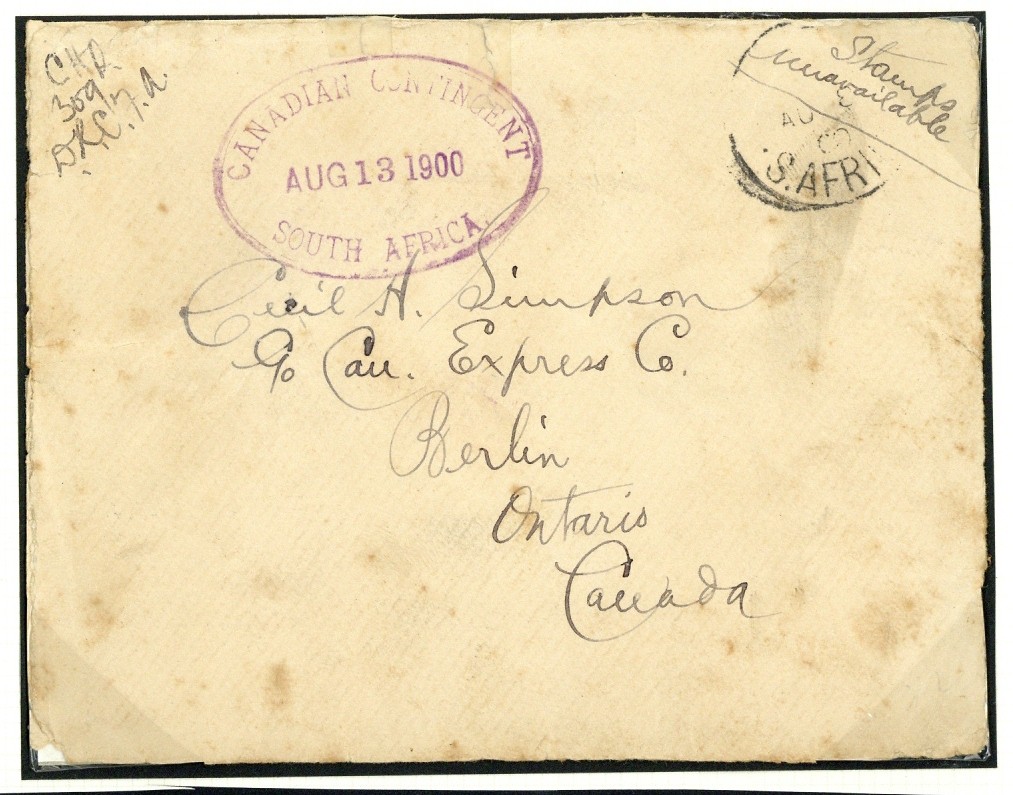 CHR
309
CANADIAN CONTINGENT
AUG 13 1900
SOUTH AFRICA
Stamps
unavailable
AU
.S.AFRI
Cecil H. Simpson
c/o Can. Express Co.
Berlin
Ontario
Canada